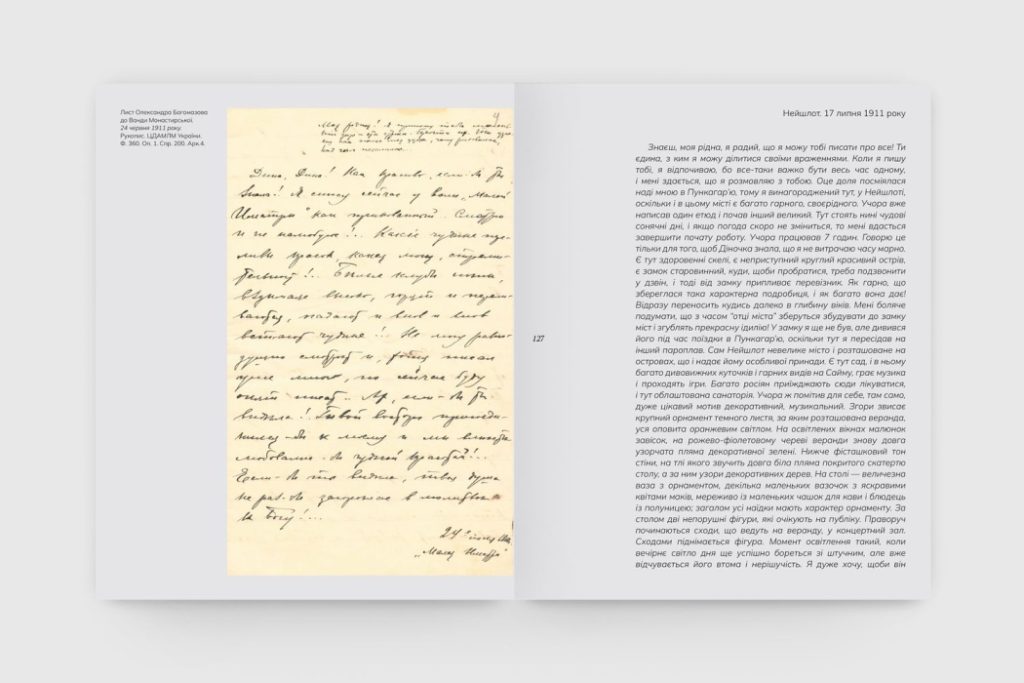 Лист Олександра Богомазова
до Ванди Монастирської.
24 червня 1911 року.
Рукопис. ЦДАМЛМ України.
Ф. 360. Оп. 1. Спр. 200. Арк.4.
4
Дина, Дина! Как красиво, если-б ты
знала! Я сижу сейчас у волн „Малой
Иматры" как прикованный. Смотрю
и не налюбуюсь!.. Какие чудные
Белые клубы пены,
падают и вновь и вновь
встают чудные!.. Не могу
смотреть и,
но сейчас буду
опять писать. Ах, если-б ты
видела!
к моему и мы вместе
Если-б ты видела, твоя душа
не раз-бы в молитве
к Богу!...
Нейшлот. 17 липня 1911 року
Знаєш, моя рідна, я радий, що я можу тобі писати про все! Ти
єдина, з ким я можу ділитися своїми враженнями. Коли я пишу
тобі, я відпочиваю, бо все-таки важко бути весь час одному,
і мені здається, що я розмовляю з тобою. Оце доля посміялася
наді мною в Пункагар'ю, тому я винагороджений тут, у Нейшлоті,
оскільки і в цьому місті є багато гарного, своєрідного. Учора вже
написав один етюд і почав інший великий. Тут стоять нині чудові
сонячні дні, і якщо погода скоро не зміниться, то мені вдасться
завершити почату роботу. Учора працював 7 годин. Говорю це
тільки для того, щоб Діночка знала, що я не витрачаю часу марно.
Є тут здоровенні скелі, є неприступний круглий красивий острів,
є замок старовинний, куди, щоби пробратися, треба подзвонити
у дзвін, і тоді від замку припливає перевізник. Як гарно, що
збереглася така характерна подробиця, і як багато вона дає!
Відразу переносить кудись далеко в глибину віків. Мені боляче
подумати, що з часом "отці міста" зберуться збудувати до замку
міст і згублять прекрасну ідилію! У замку я ще не був, але дивився
його під час поїздки в Пункагар'ю, оскільки тут я пересідав на
інший пароплав. Сам Нейшлот невелике місто і розташоване на
островах, що і надає йому особливої принади. Є тут сад, і в ньому
багато дивовижних куточків і гарних видів на Сайму, грає музика
і проходять ігри. Багато росіян приїжджають сюди лікуватися,
і тут облаштована санаторія. Учора ж помітив для себе, там само,
дуже цікавий мотив декоративний, музикальний. Згори звисає
крупний орнамент темного листя, за яким розташована веранда,
уся оповита оранжевим світлом. На освітлених вікнах малюнок
завісок, на рожево-фіолетовому череві веранди знову довга
узорчата пляма декоративної зелені. Нижче фісташковий тон
стіни, на тлі якого звучить довга біла пляма покритого скатертю
столу, а за ним узори декоративних дерев. На столі — величезна
ваза з орнаментом, декілька маленьких вазочок з яскравими
квітами маків, мереживо із маленьких чашок для кави і блюдець
із полуницею; загалом усі наїдки мають характер орнаменту. За
столом дві непорушні фігури, які очікують на публіку. Праворуч
починаються сходи, що ведуть на веранду, у концертний зал.
Сходами піднімається фігура. Момент освітлення такий, коли
вечірнє світло дня ще успішно бореться зі штучним, але вже
відчувається його втома і нерішучість. Я дуже хочу, щоби він
127